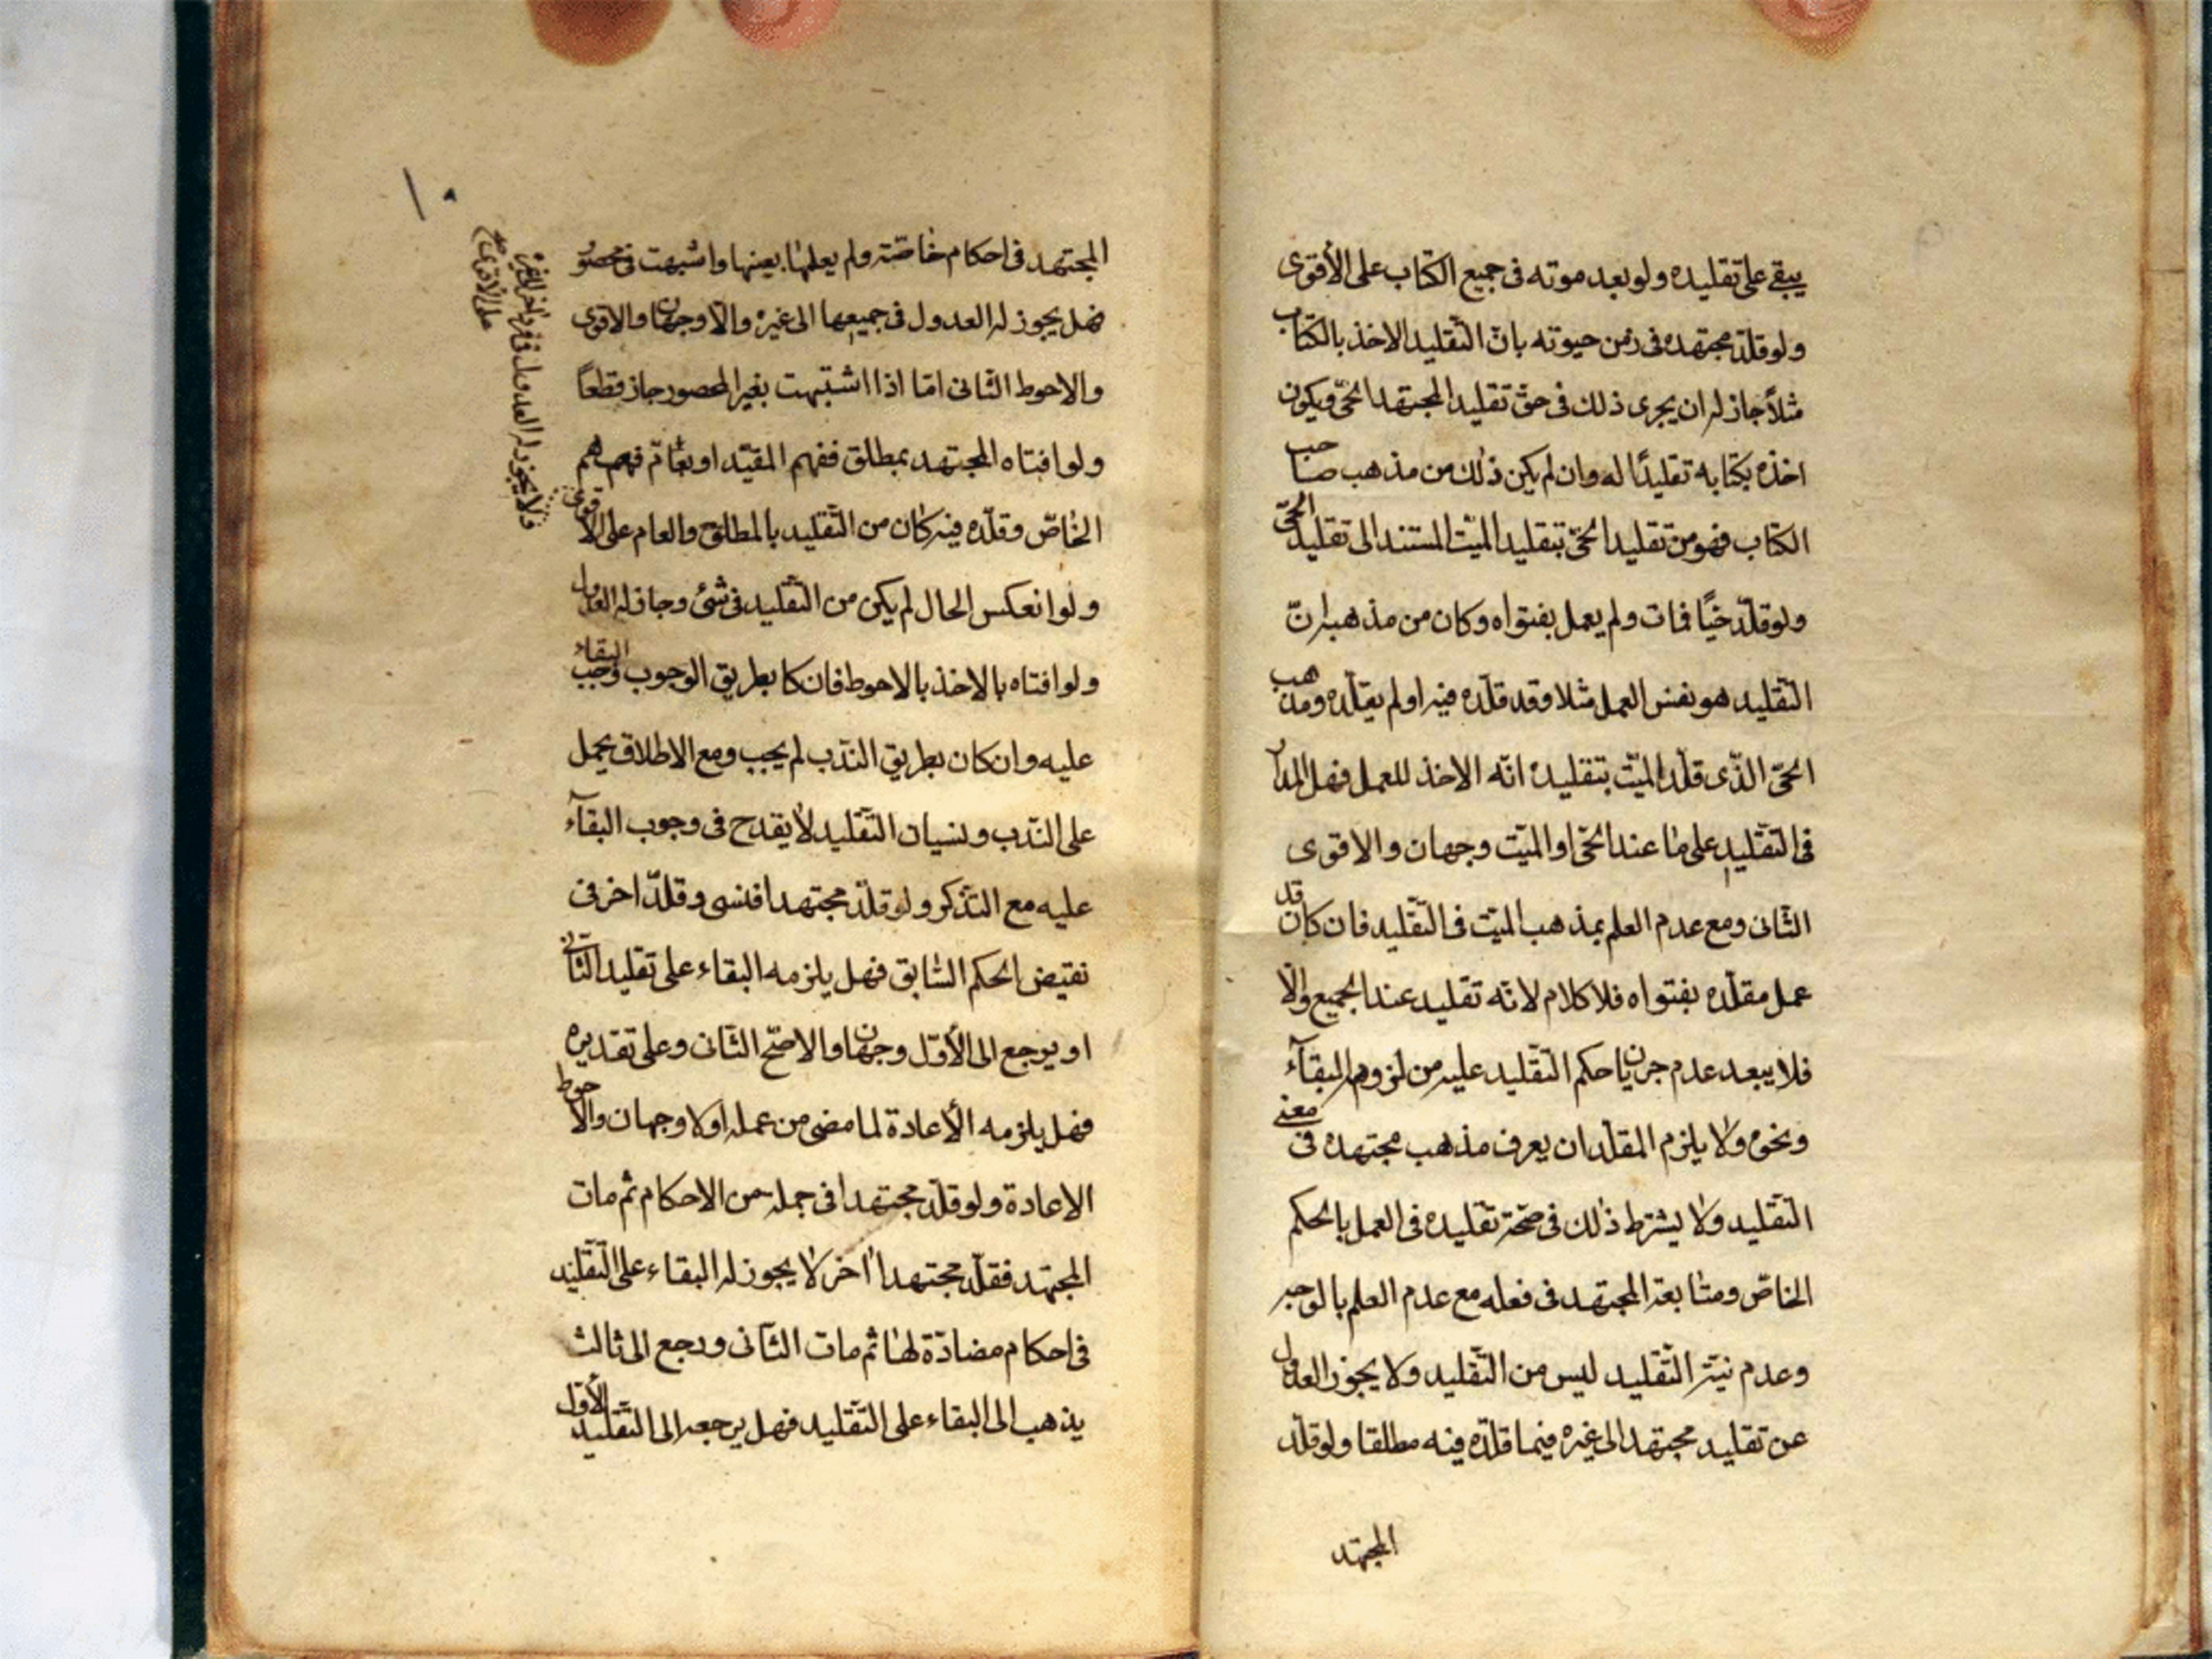 يبقى على تقليده ولو بعد موته فى جميع الكتاب على الأقوى
ولو قلّد مجتهده فى زمن حيوته بان التّقليد الاخذ بالكتاب
مثلاً جاز له ان يجرى ذلك فى حقّ تقليد المجتهد الحىّ ويكون
اخذه بكتابه تقليدًا له وان لم يكن ذلك من مذهب صاحب
الكتاب فهو من تقليد الحىّ بتقليد الميّت المستند الى تقليد الحىّ
ولو قلّد حيًّا فمات ولم يعمل بفتواه وكان من مذهبه انّ
التّقليد هو نفس العمل مثلا وقد قلّده فيه او لم يقلّده ومذهب
الحىّ الذّى قلّد الميّت بتقليده انّه الاخذ للعمل فهل المدار
فى التّقليد على ما عند الحىّ او الميّت وجهان والاقوى
الثّانى ومع عدم العلم بمذهب الميّت فى التّقليد فان كان قد
عمل مقلّده بفتواه فلا كلام لانّه تقليد عند الجميع والّا
فلا يبعد عدم جريان احكم التّقليد عليه من لزوم البقآء
ونحوه ولا يلزم المقلّد ان يعرف مذهب مجتهده فى معنى
التّقليد ولا يشترط ذلك فى صحّة تقليده فى العمل بالحكم
الخاصّ ومتابعة المجتهد فى فعله مع عدم العلم بالوجه
وعدم نيّة التّقليد ليس من التّقليد ولا يجوز العدول
عن تقليد مجتهد الى غيره فيما قلّده فيه مطلقا ولو قلّد
المجتهد
١٠
المجتهد فى احكام خاصّة ولم يعلمها بعينها واشبهت فى محصور
فهل يجوز له العدول فى جميعها الى غيره والّا وجهان والاقوى
والاحوط الثّانى امّا اذا اشتبهت بغير المحصور جاز قطعاً
ولو افتاه المجتهد بمطلق ففهم المقيّد او بعامّ فهم
الخاصّ وقلّده فيه كان من التّقليد بالمطلق والعام على الاقوى
ولو انعكس الحال لم يكن من التّقليد فى شئ وجاز له العدول
ولو افتاه بالاخذ بالاحوط فان كا بطريق الوجوب وجب البقاء
عليه وان كان بطريق النّدب لم يجب ومع الاطلاق يحمل
على النّدب ونسيان التّقليد لا يقدح فى وجوب البقآء
عليه مع التذكر ولو قلّد مجتهدا فنسى وقلّد اخر فى
نقيض الحكم السّابق فهل يلزمه البقاء على تقليد الثّانى
او يرجع الى الأوّل وجهان والاصحّ الثّانى وعلى تقديره
فهل يلزمه الأعادة لما مضى من عمله اولا وجهان والاحوط
الاعادة ولو قلّد مجتهدا فى جملة من الاحكام ثم مات
المجتهد فقلّد مجتهدا اخر لا يجوز له البقاء على التّقليد
فى احكام مضادّة لها ثم مات الثّانى ورجع الى ثالث
يذهب الى البقاء على التّقليد فهل يرجعه الى التّقليد الأوّل
فلا يجوز له العدول
على الاقوى